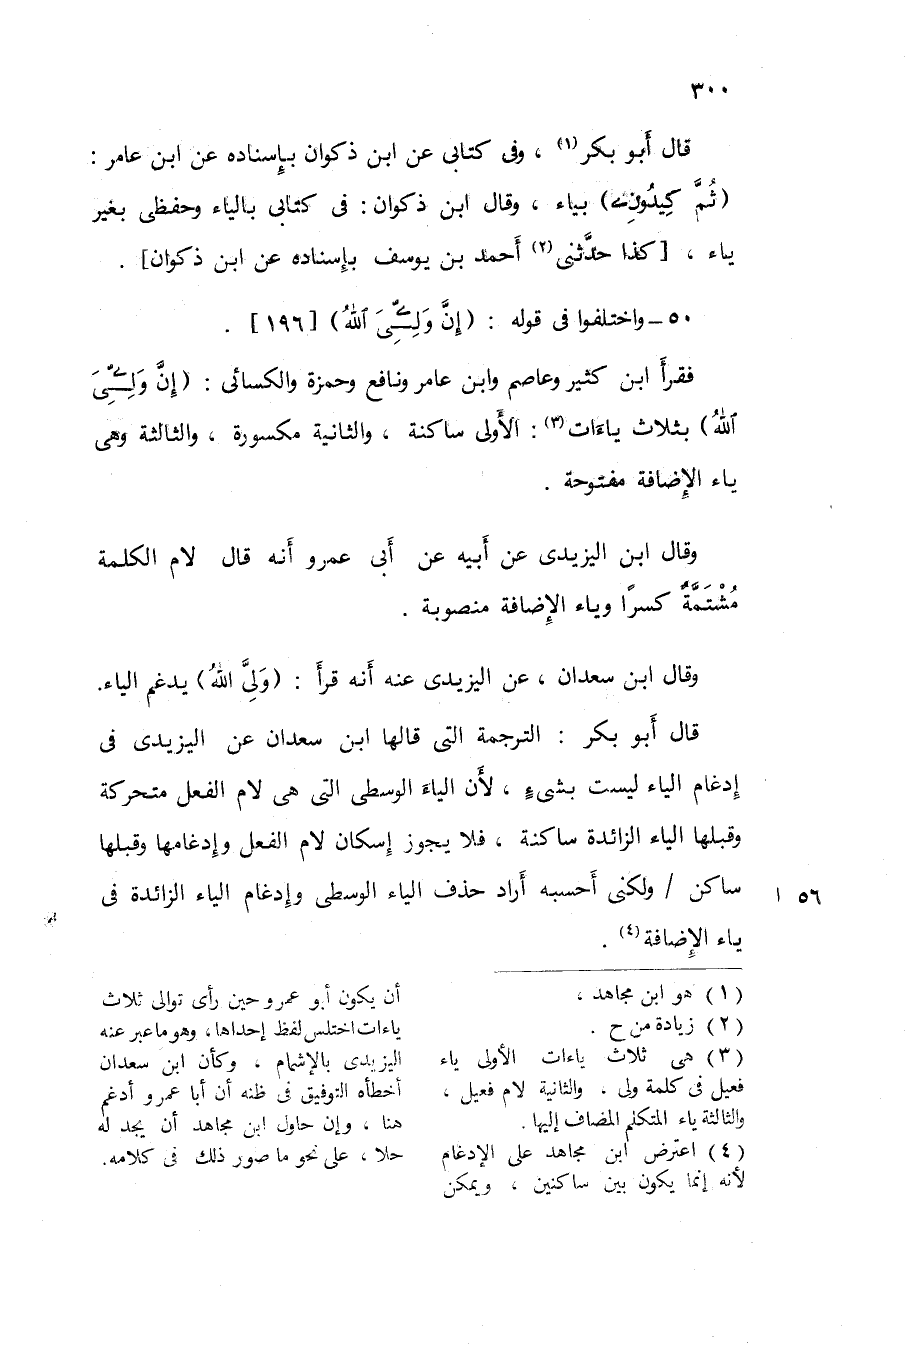 ٣٠٠
قال أبو بكر (١) ، وفى كتابى عن ابن ذكوان بإسناده عن ابن عامر :
( ثُمَّ كِيدُونِے ) بياء ، وقال ابن ذكوان : فى كتابى بالياء وحفظى بغير
ياء ، [ كذا حدَّثنى (٢) أحمد بن يوسف بإسناده عن ابن ذكوان ] .
٥٠ ــ واختلفوا فى قوله : ( إِنَّ وَلِـِّۧىَ ٱللهُ ) [ ١٩٦ ] .
فقرأَ ابن كثير وعاصم وابن عامر ونافع وحمزة والكسائى : ( إِنَّ وَلِـِّۧىَ
ٱللهُ ) بثلاث ياءَات (٣) : الأُولى ساكنة ، والثانية مكسورة ، والثالثة وهى
ياء الإِضافة مفتوحة .
وقال ابن اليزيدى عن أَبيه عن أَبى عمرو أَنه قال لام الكلمة
مُشْتَمَّةٌ كسرًا وياء الإِضافة منصوبة .
وقال ابن سعدان ، عن اليزيدى عنه أَنه قرأَ : ( وَلِىَّ اللهُ ) يدغم الياء.
قال أَبو بكر : الترجمة التى قالها ابن سعدان عن اليزيدى فى
إدغام الياء ليست بشىءٍ ، لأَن الياءَ الوسطى التى هى لام الفعل متحركة
وقبلها الياء الزائدة ساكنة ، فلا يجوز إسكان لام الفعل وإدغامها وقبلها
ساكن / ولكنى أَحسبه أَراد حذف الياء الوسطى وإدغام الياء الزائدة فى
٥٦ ا
ياء الإِضافة (٤) .
(١) هو ابن مجاهد ،
(٢) زيادة من ح .
(٣) هى ثلاث ياءات الأولى ياء
فعيل فى كلمة ولى ، والثانية لام فعيل ،
والثالثة ياء المتكلم المضاف إليها .
(٤) اعترض ابن مجاهد على الإدغام
لأنه إنما يكون بين ساكنين ، ويمكن
أن يكون أبو عمرو حين رأى توالى ثلاث
ياءات اختلس لفظ إحداها ، وهو ما عبر عنه
اليزيدى بالإشمام ، وكأن ابن سعدان
أخطأه التوفيق فى ظنه أن أبا عمرو أدغم
هنا ، وإن حاول ابن مجاهد أن يجد له
حلا ، على نحو ما صور ذلك فى كلامه.